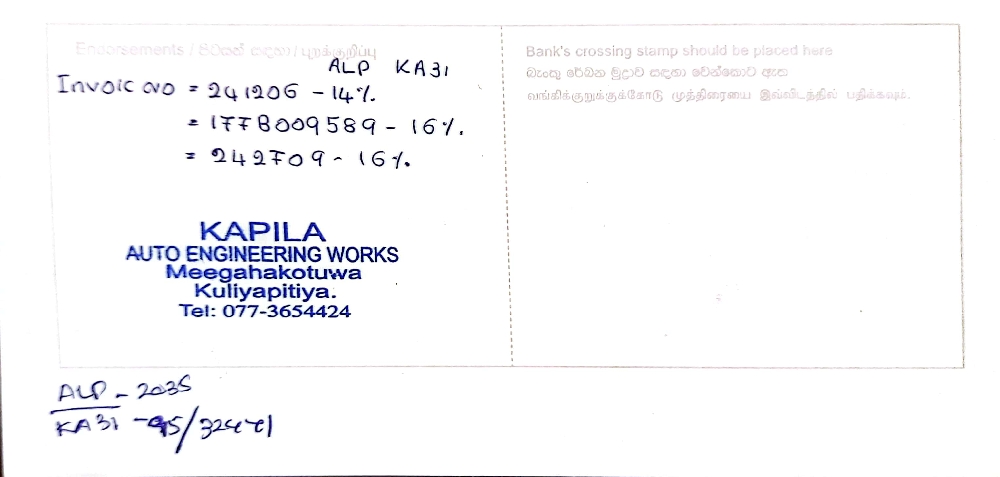 Endorsements / පිටසන් සඳහා / புறக்குறிப்பு
ALP KA31
Invoic no = 241206 - 14%.
= 1778009589 - 16%.
= 242709 - 16%.
KAPILA
AUTO ENGINEERING WORKS
Meegahakotuwa
Kuliyapitiya.
Tel: 077-3654424
Bank's crossing stamp should be placed here
බැංකු රේඛන මුද්‍රාව සඳහා වෙන්කොට ඇත
வங்கிக்குறுக்குக்கோடு முத்திரையை இவ்விடத்தில் பதிக்கவும்.
ALP - 2035
KA31 -